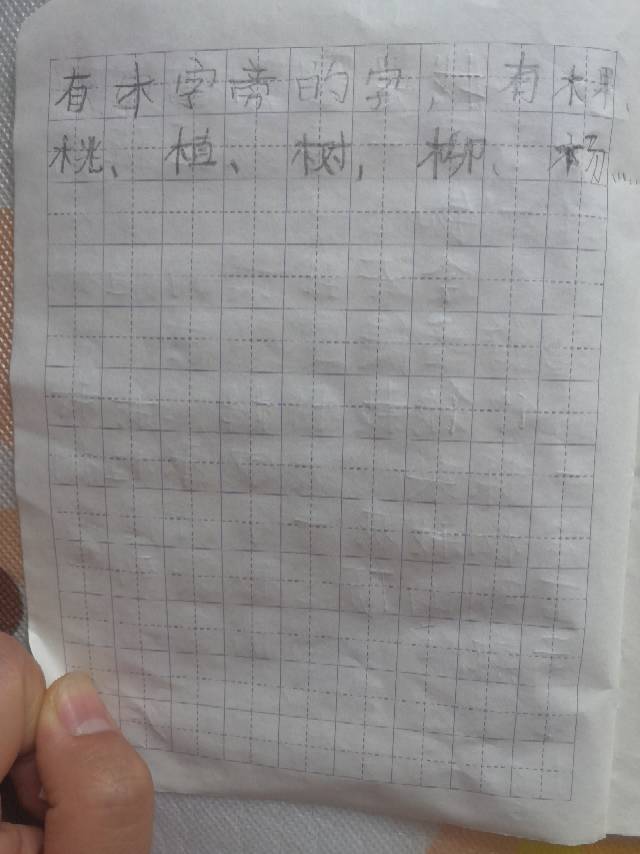 有木字旁的字，有棵、
桃、植、树，柳、杨……